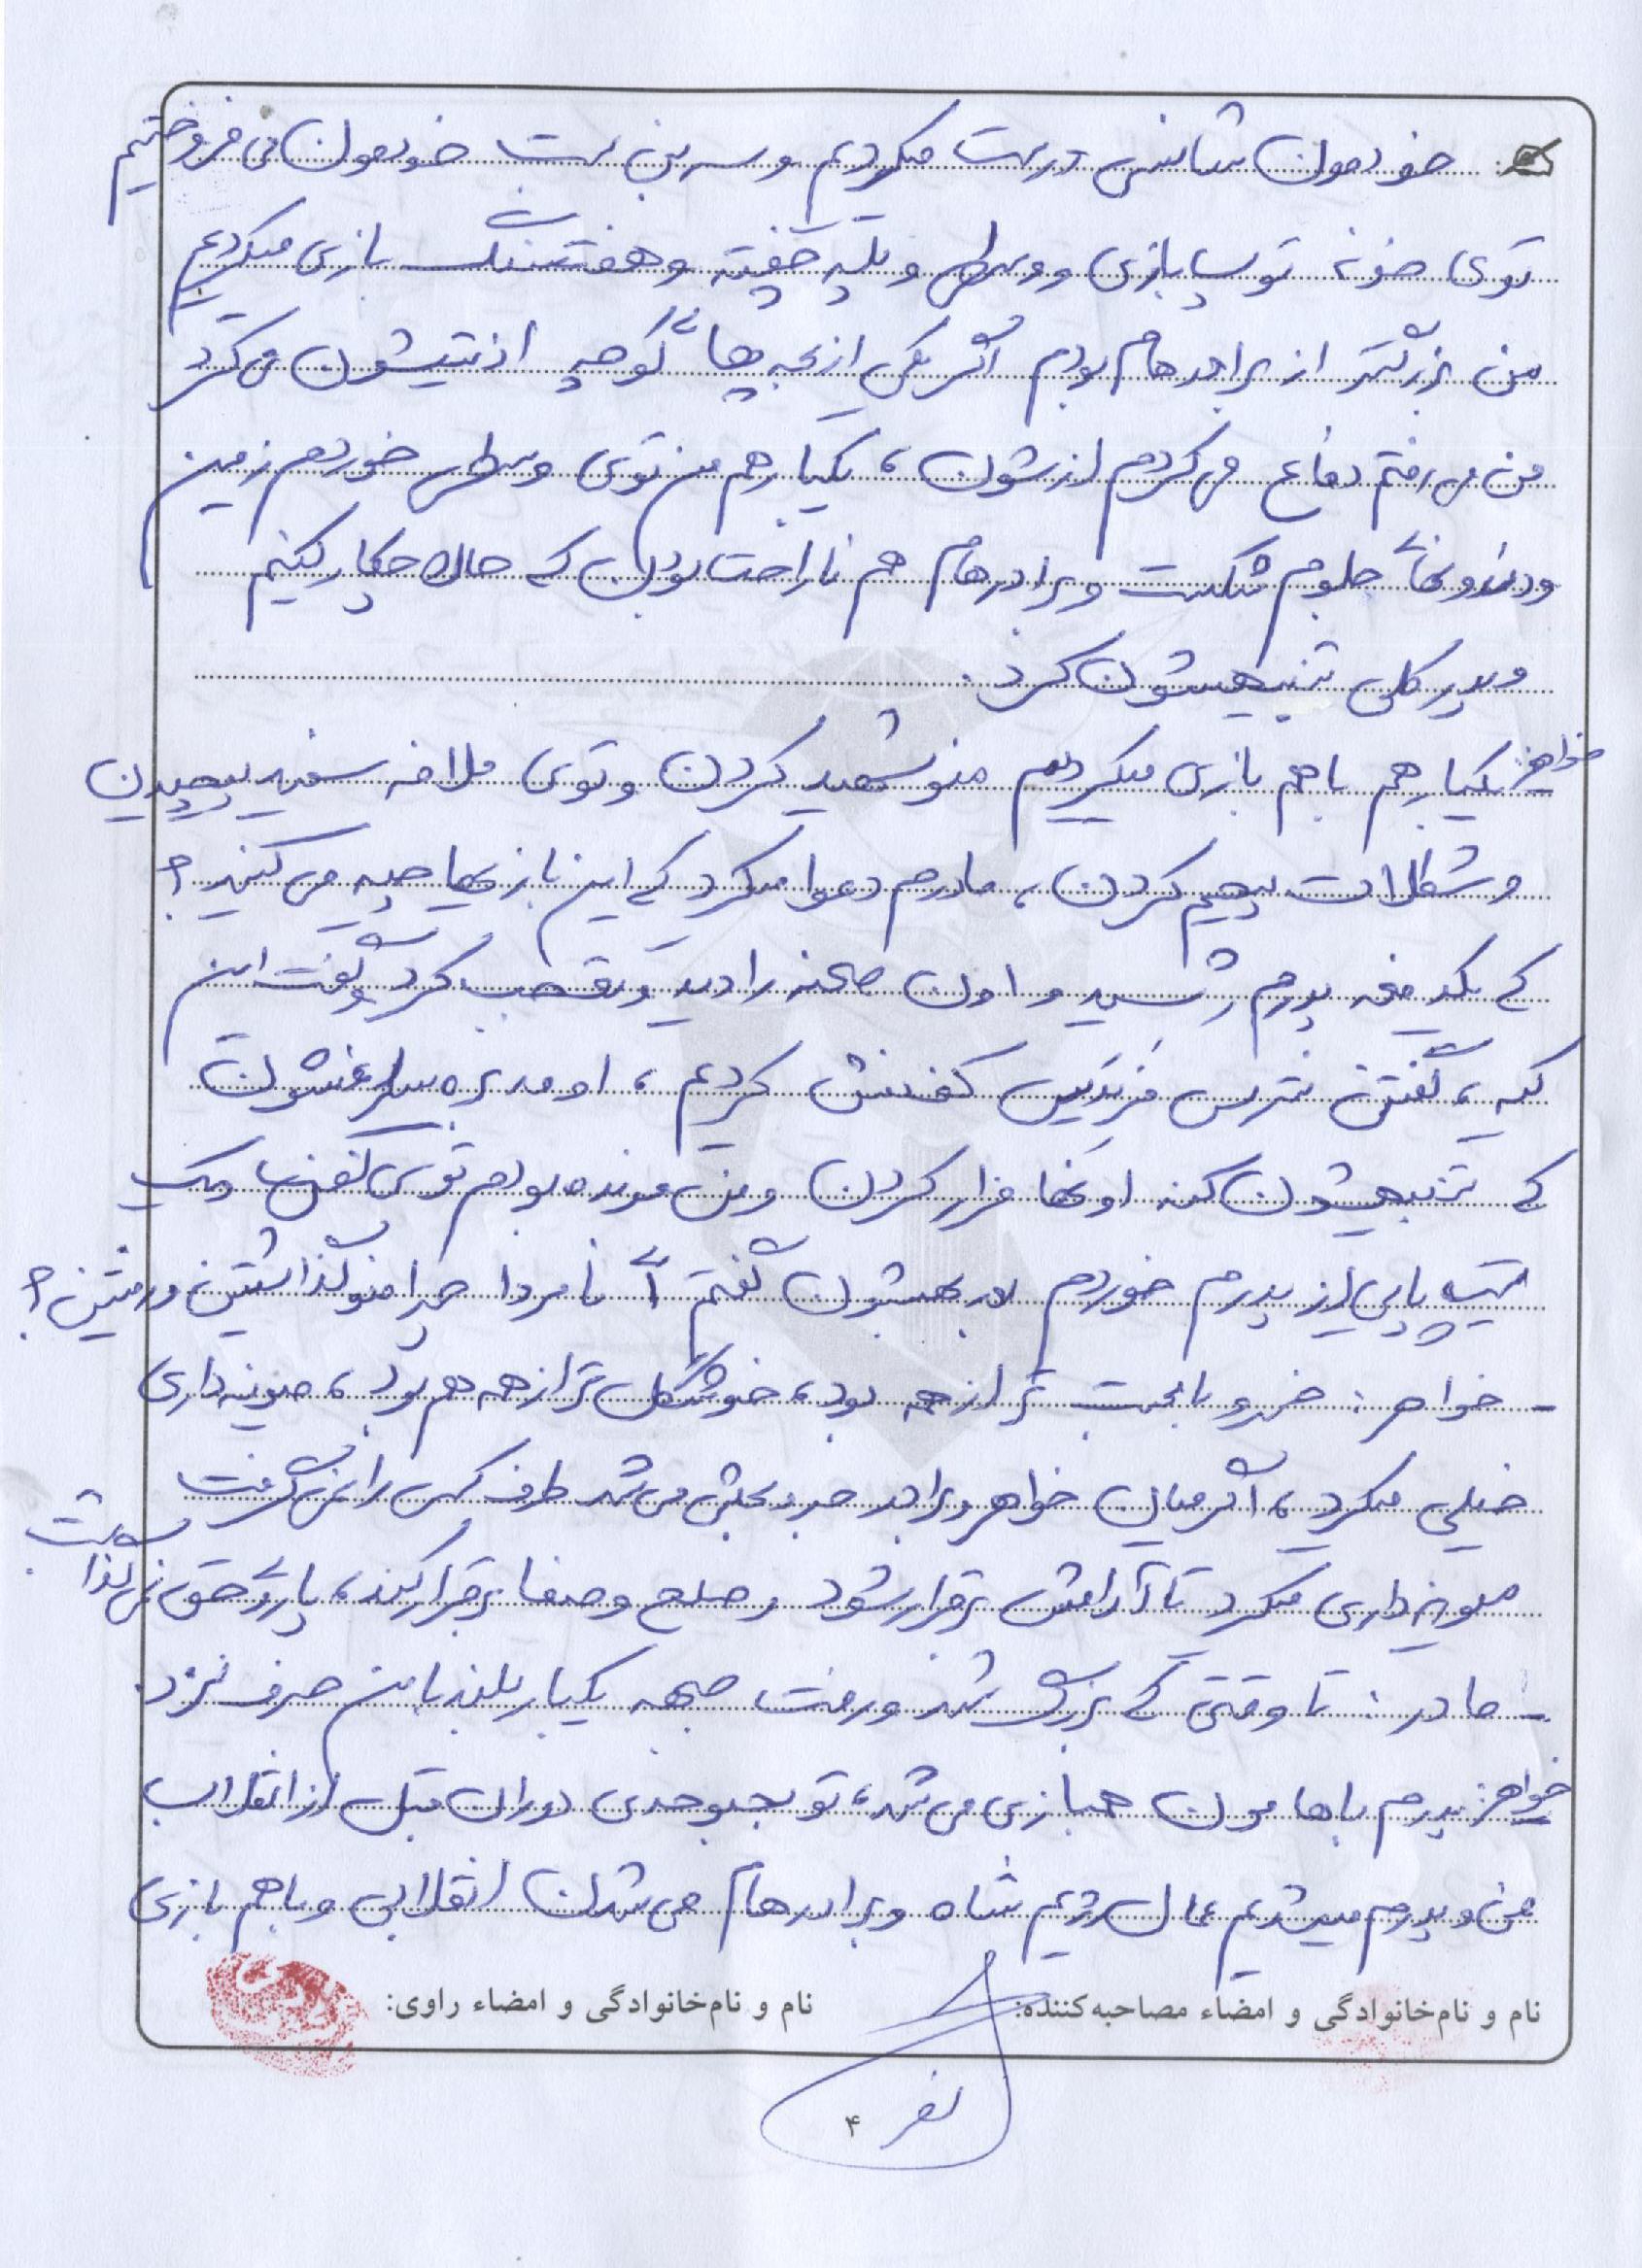 خودمون شانسی درست میکردیم و سر بن بست خودمون می فروختیم
توی خونه توپ بازی و وسطی و بلپر خفیته و هفت سنگ بازی میکردیم
من بزرگتر از برادرهام بودم اگر یکی از بچه های کوچه اذیتشون می کرد
من می رفتم دفاع می کردم ازشون، یکبار هم من توی وسطی خوردم زمین
و دندونهای جلوم شکست و برادرهام هم ناراحت بودن که حالا چکار کنیم
و پدر کلی تنبیهشون کرد.
خواهر: یکبار هم باهم بازی میکردیم منو شهید کردن و توی ملافه سفید پیچیدن
و شکلات پهم کردن، مادرم دعوا میکرد که این بازیها چیه می کنید؟
که یکدفعه پدرم رسید و اون صحنه را دید و تعجب کرد و گفت این
کیه، گفتن نترس فرنگیس کفنش کردیم، اومد بره سراغشون
که تنبیهشون کنه اونها فرار کردن و من مونده بودم توی کفن و یک
تیپ پایی از پدرم خوردم بعد بهشون گفتم ای نامردا چرا منو گذاشتین و رفتین؟
- خواهر: خسرو با محبت تر از همه بود، خوشگل تر از همه هم بود، صبونه داری
خیلی میکرد، اگر میان خواهر و برادر جر و بحثی می شد طرف کسی را نمی گرفت
میونه داری میکرد تا آرامش برقرار شود و صلح و صفا برقرار کند، پا روی حق نمی گذاشت
- مادر: تا وقتی که بزرگ شد و رفت جبهه یکبار بلند با من حرف نزد.
خواهر: پدرم باهامون همبازی می شد، تو بحبوحه ی دوران قبل از انقلاب
من و پدرم میشدیم عمال رژیم شاه و برادرهام می شدن انقلابی و باهم بازی
نام و نام‌خانوادگی و امضاء مصاحبه‌کننده:
نام و نام‌خانوادگی و امضاء راوی:
۴